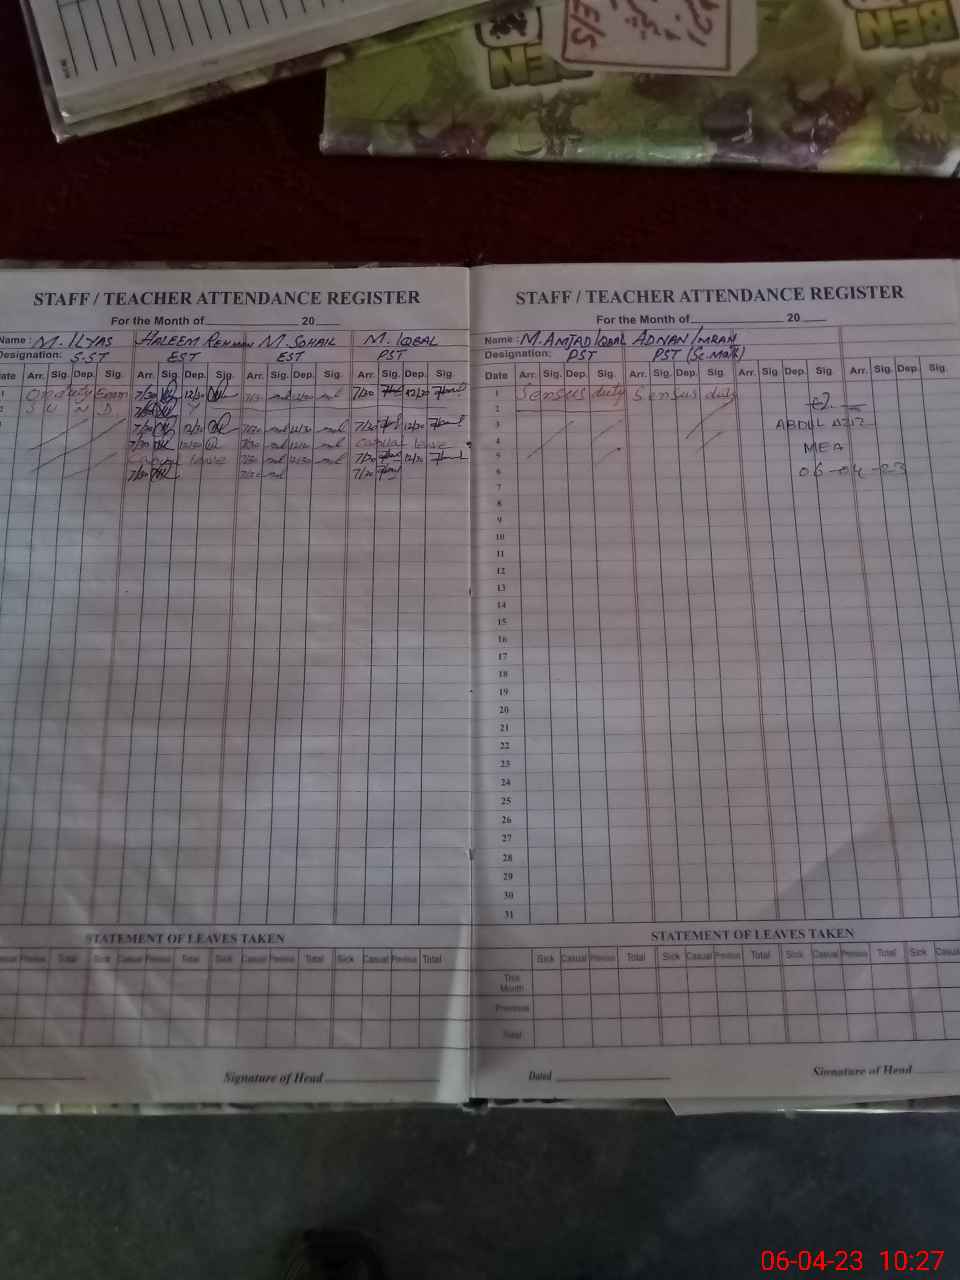 BEN
BEN
BEN
STAFF / TEACHER ATTENDANCE REGISTER
For the Month of 20
Name : M. ILYAS HALEEM REHMAN M. SOHAIL M. IQBAL
Designation: S.ST EST EST PST
Arr. Sig. Dep. Sig. Arr. Sig. Dep. Sig. Arr. Sig. Dep. Sig. Arr. Sig. Dep. Sig.
On duty Exam 7/30 12/30 7/30 12/30 7/30 12/30
S U N D A Y
7/30 12/30 7/30 12/30 7/30 12/30
7/30 12/30 7/30 12/30 Casual leave
Casual leave 7/30 12/30 7/30 12/30
7/30 7/30 7/30
STATEMENT OF LEAVES TAKEN
Casual Previous Total Sick Casual Previous Total Sick Casual Previous Total Sick Casual Previous Total
Signature of Head
STAFF / TEACHER ATTENDANCE REGISTER
For the Month of 20
Name : M. AMJAD IQBAL ADNAN IMRAN
Designation: PST PST (Sc.Math)
Date Arr. Sig. Dep. Sig. Arr. Sig. Dep. Sig. Arr. Sig. Dep. Sig. Arr. Sig. Dep. Sig.
1 Sensus duty Sensus duty
2
3 ABDUL AZIZ
4 MEA
5
6 06-04-23
7
8
9
10
11
12
13
14
15
16
17
18
19
20
21
22
23
24
25
26
27
28
29
30
31
STATEMENT OF LEAVES TAKEN
Sick Casual Previous Total Sick Casual Previous Total Sick Casual Previous Total Sick Casual
This Month
Previous
Total
Dated Signature of Head
06-04-23 10:27